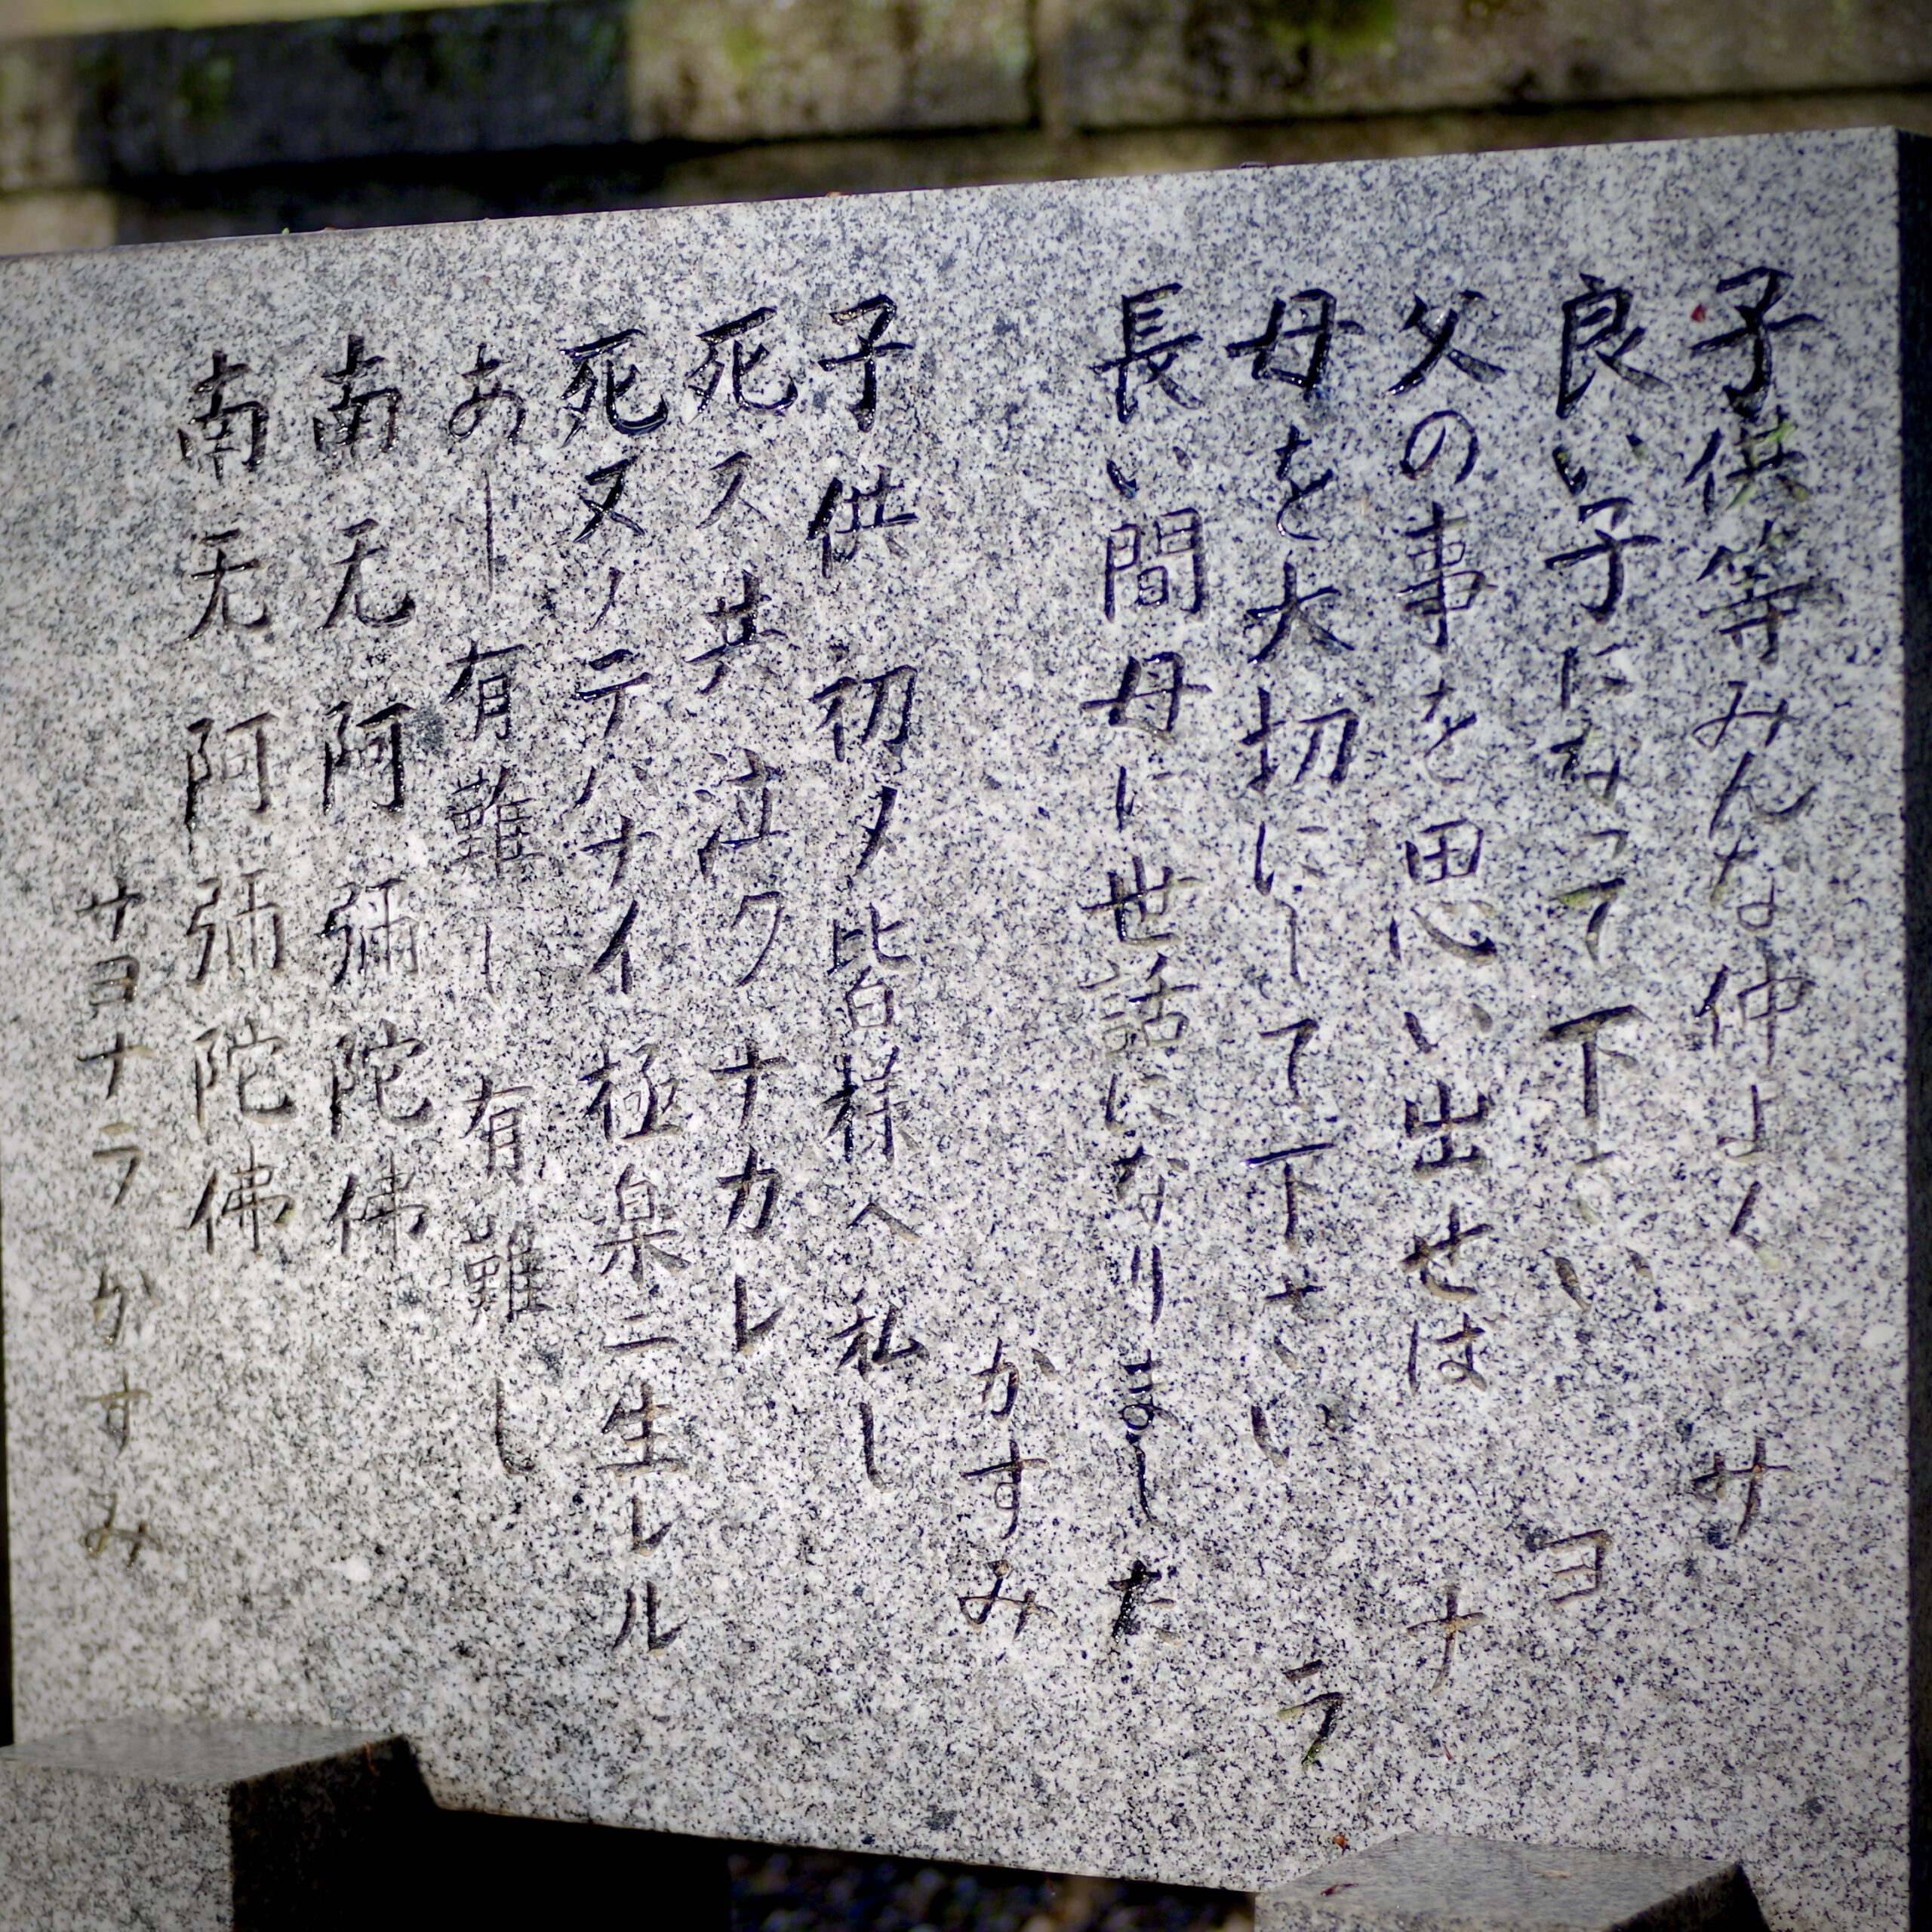 子供等みんな仲よく サ
良い子になって下さい ヨ
父の事を思い出せば ナ
母を大切にして下さい ラ
長い間母に世話になりました
かすみ
子供 初メ皆様へ私し
死ス共 泣クナカレ
死ヌノテハナイ極楽ニ生レル
あー 有難し 有難し
南无 阿彌陀佛
南无 阿彌陀佛
サヨナラかすみ